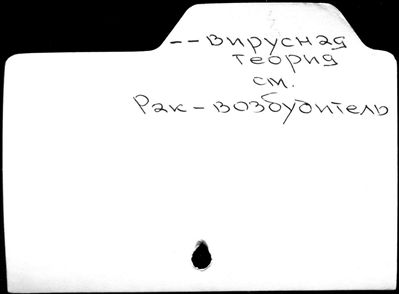 -- вирусная
теория
см.
Рак - возбудитель